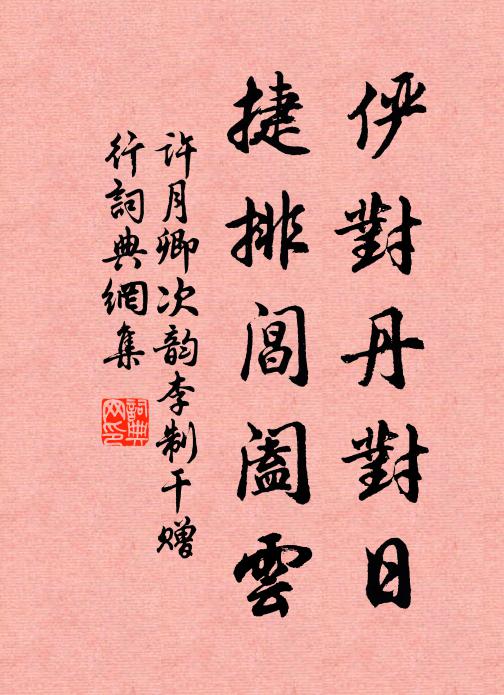 伻對丹對日
捷排閶闔雲
許月卿次韵李制干贈
行詞典網集
詞典
网印